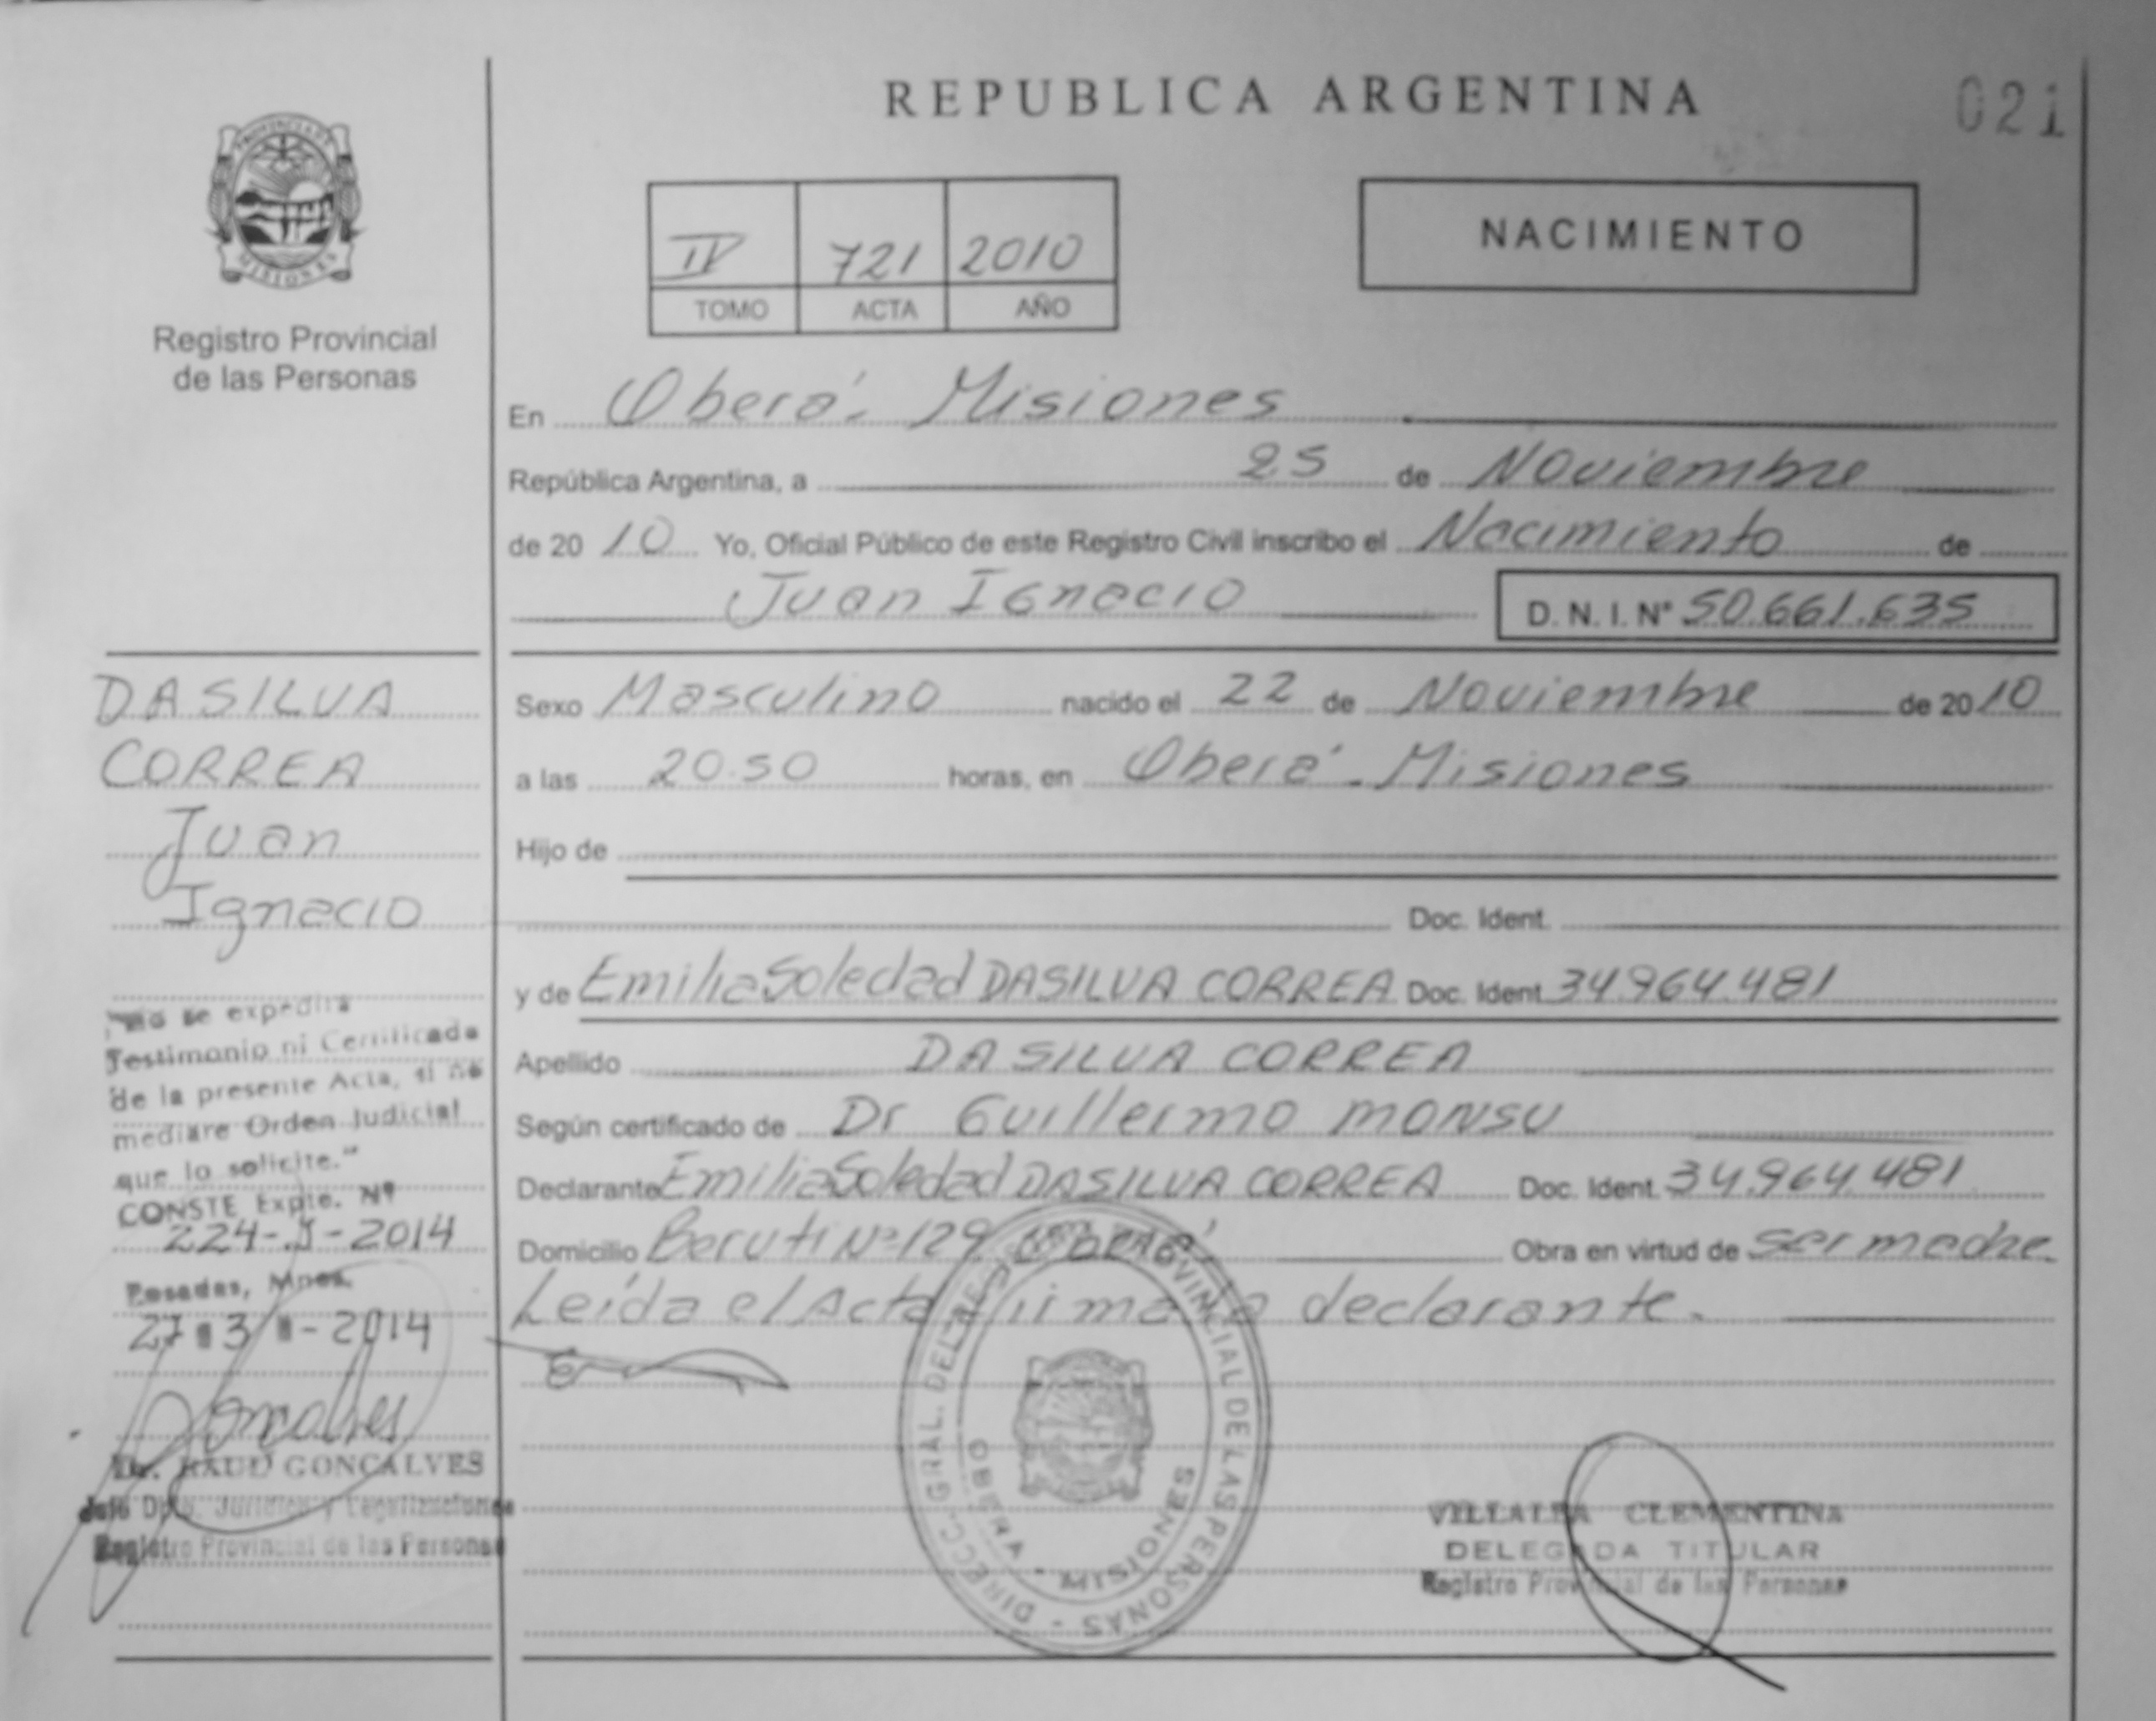 REPUBLICA ARGENTINA
021
PROVINCIA DE
MISIONES
Registro Provincial
de las Personas
IV 721 2010
TOMO ACTA AÑO
NACIMIENTO
En Oberá. Misiones
República Argentina, a 25 de Noviembre
de 2010 Yo, Oficial Público de este Registro Civil inscribo el Nacimiento de
Juan Ignacio D. N. I. N° 50.661.635
Sexo Masculino nacido el 22 de Noviembre de 2010
a las 20.50 horas, en Oberá. Misiones
Hijo de
Doc. Ident.
y de Emilia Soledad DASILVA CORREA Doc. Ident. 34.964.481
Apellido DA SILVA CORREA
Según certificado de Dr Guillermo MONSU
Declarante Emilia Soledad DASILVA CORREA Doc. Ident. 34.964.481
Domicilio Beruti Nº 129 Oberá Obra en virtud de ser madre
Leída el Acta firma la declarante.
DASILVA
CORREA
Juan
Ignacio
"no se expedira
Testimonio ni Certificado
de la presente Acta, si no
mediare Orden Judicial
que lo solicite."
CONSTE Expte. Nº
224-J-2014
Posadas, Mnes.
27 3 - 2014
Goncalves
Dr. RAUD GONCALVES
Jefe Dpto. Jurídico y Legalizaciones
Registro Provincial de las Personas
DIRECC. GRAL. DEL REGISTRO PROVINCIAL DE LAS PERSONAS -
OBERA - MISIONES
VILLALBA CLEMENTINA
DELEGADA TITULAR
Registro Provincial de las Personas